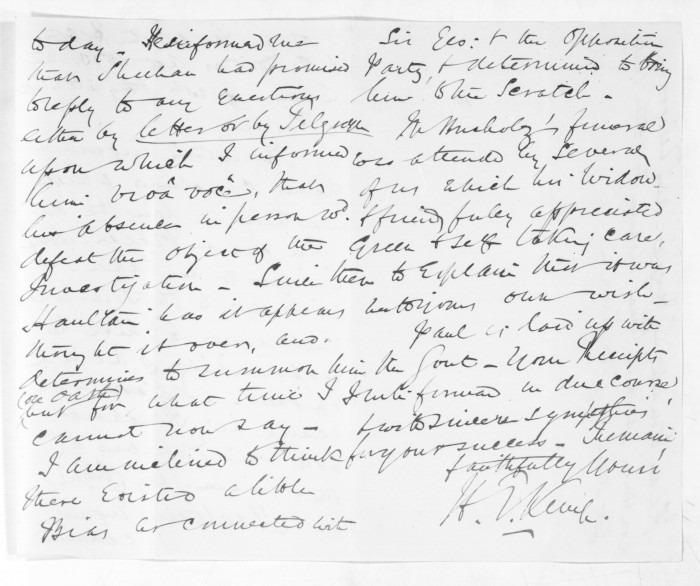 today - He informed me
that Sheehan had promised
to reply to any Questions
either by letter or by Telegram
upon which I informed
him vivâ voce, that
his absence in person wd.
defeat the object of the
Investigation - Since then
Haultain has it appears
thought it over, and
determines to summon him
(on oath)
but for what time I
cannot now say -
I am inclined to think
there existed a little
Bias as connected with
Sir Geo: & the Opposition
Party, & determined to bring
him to the Scratch -
Mr 's funeral
was attended by Several
of us which his Widow
& friends fully appreciated
Green & Self taking care,
to Explain that it was
your own wish -
Paul is laid up with
the Gout - Your Receipts
I will forward in due course
& with sincere sympathies
for your success - I remain
faithfully Yours
H. T. Kemp.